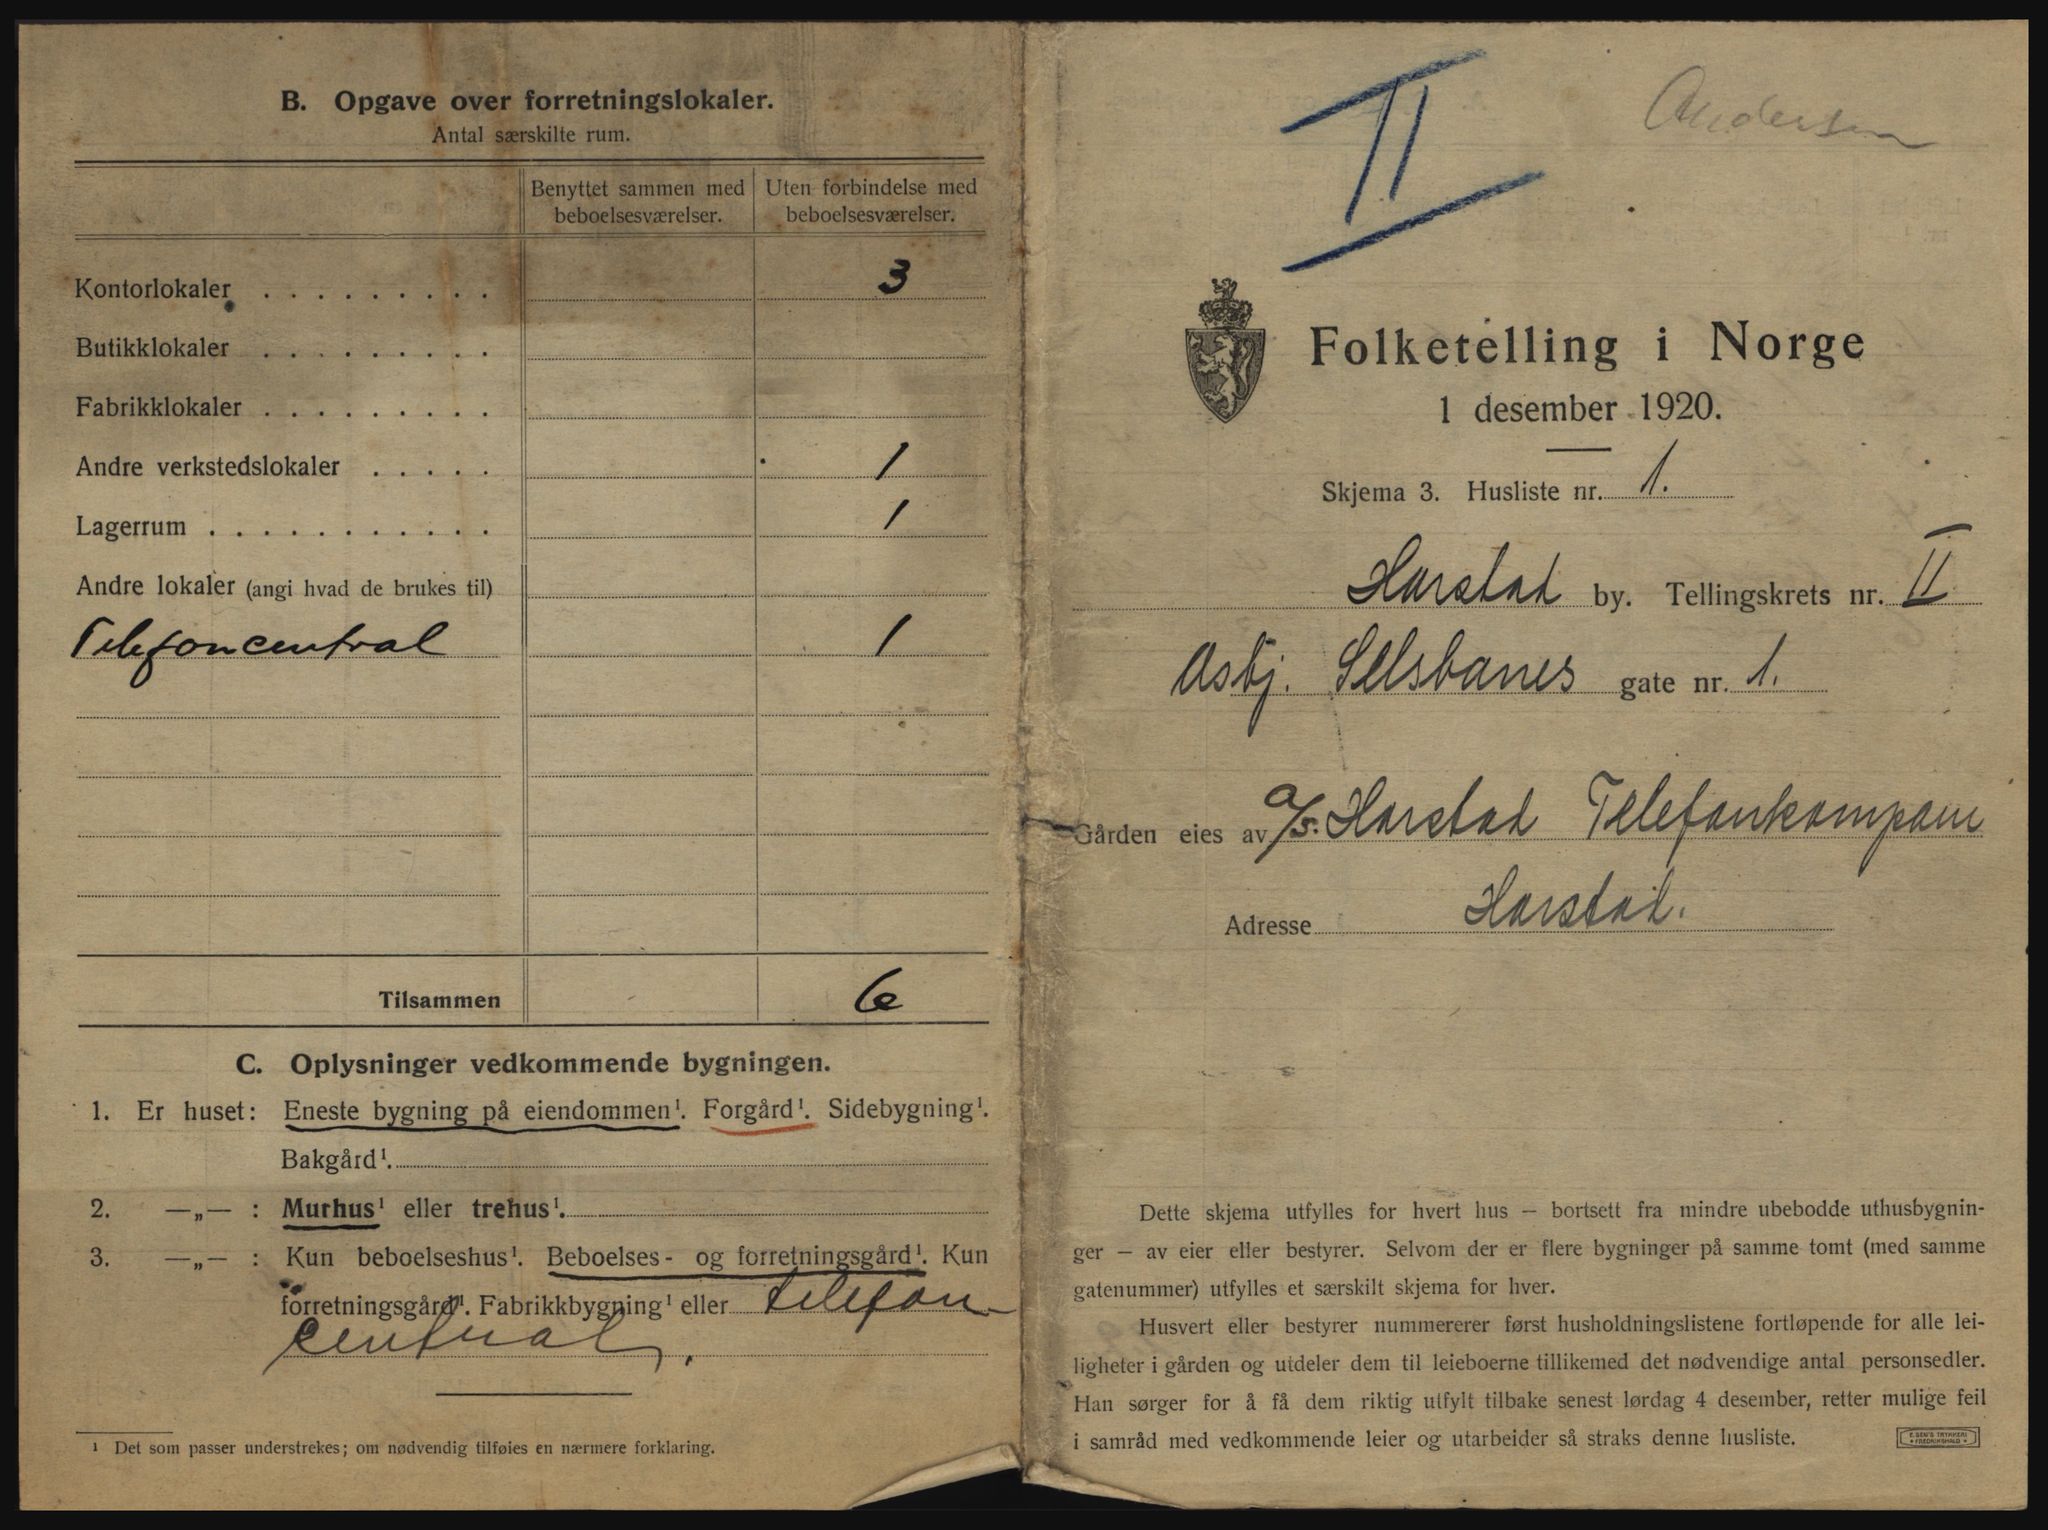 B. Opgave over forretningslokaler.
Antal særskilte rum.
Benyttet sammen med beboelsesværelser.
Uten forbindelse med beboelsesværelser.
Kontorlokaler . . . . . . . . . 3
Butikklokaler . . . . . . . . .
Fabrikklokaler . . . . . . . . .
Andre verkstedslokaler . . . . . 1
Lagerrum . . . . . . . . . . . 1
Andre lokaler (angi hvad de brukes til)
Telefoncentral 1
Tilsammen 6
C. Oplysninger vedkommende bygningen.
1. Er huset: Eneste bygning på eiendommen¹. Forgård¹. Sidebygning¹.
Bakgård¹.
2. —„— : Murhus¹ eller trehus¹.
3. —„— : Kun beboelseshus¹. Beboelses- og forretningsgård¹. Kun
forretningsgård¹. Fabrikkbygning¹ eller telefon-
central.
¹ Det som passer understrekes; om nødvendig tilføies en nærmere forklaring.
II
Andersen
Folketelling i Norge
1 desember 1920.
Skjema 3. Husliste nr. 1.
Harstad by. Tellingskrets nr. II
Asbj. Selsbanes gate nr. 1.
Gården eies av a/s. Harstad Telefonkompani
Adresse Harstad.
Dette skjema utfylles for hvert hus – bortsett fra mindre ubebodde uthusbygnin-
ger – av eier eller bestyrer. Selvom der er flere bygninger på samme tomt (med samme
gatenummer) utfylles et særskilt skjema for hver.
Husvert eller bestyrer nummererer først husholdningslistene fortløpende for alle lei-
ligheter i gården og utdeler dem til leieboerne tillikemed det nødvendige antal personsedler.
Han sørger for å få dem riktig utfylt tilbake senest lørdag 4 desember, retter mulige feil
i samråd med vedkommende leier og utarbeider så straks denne husliste.
E. SEM'S TRYKKERI
FREDRIKSHALD